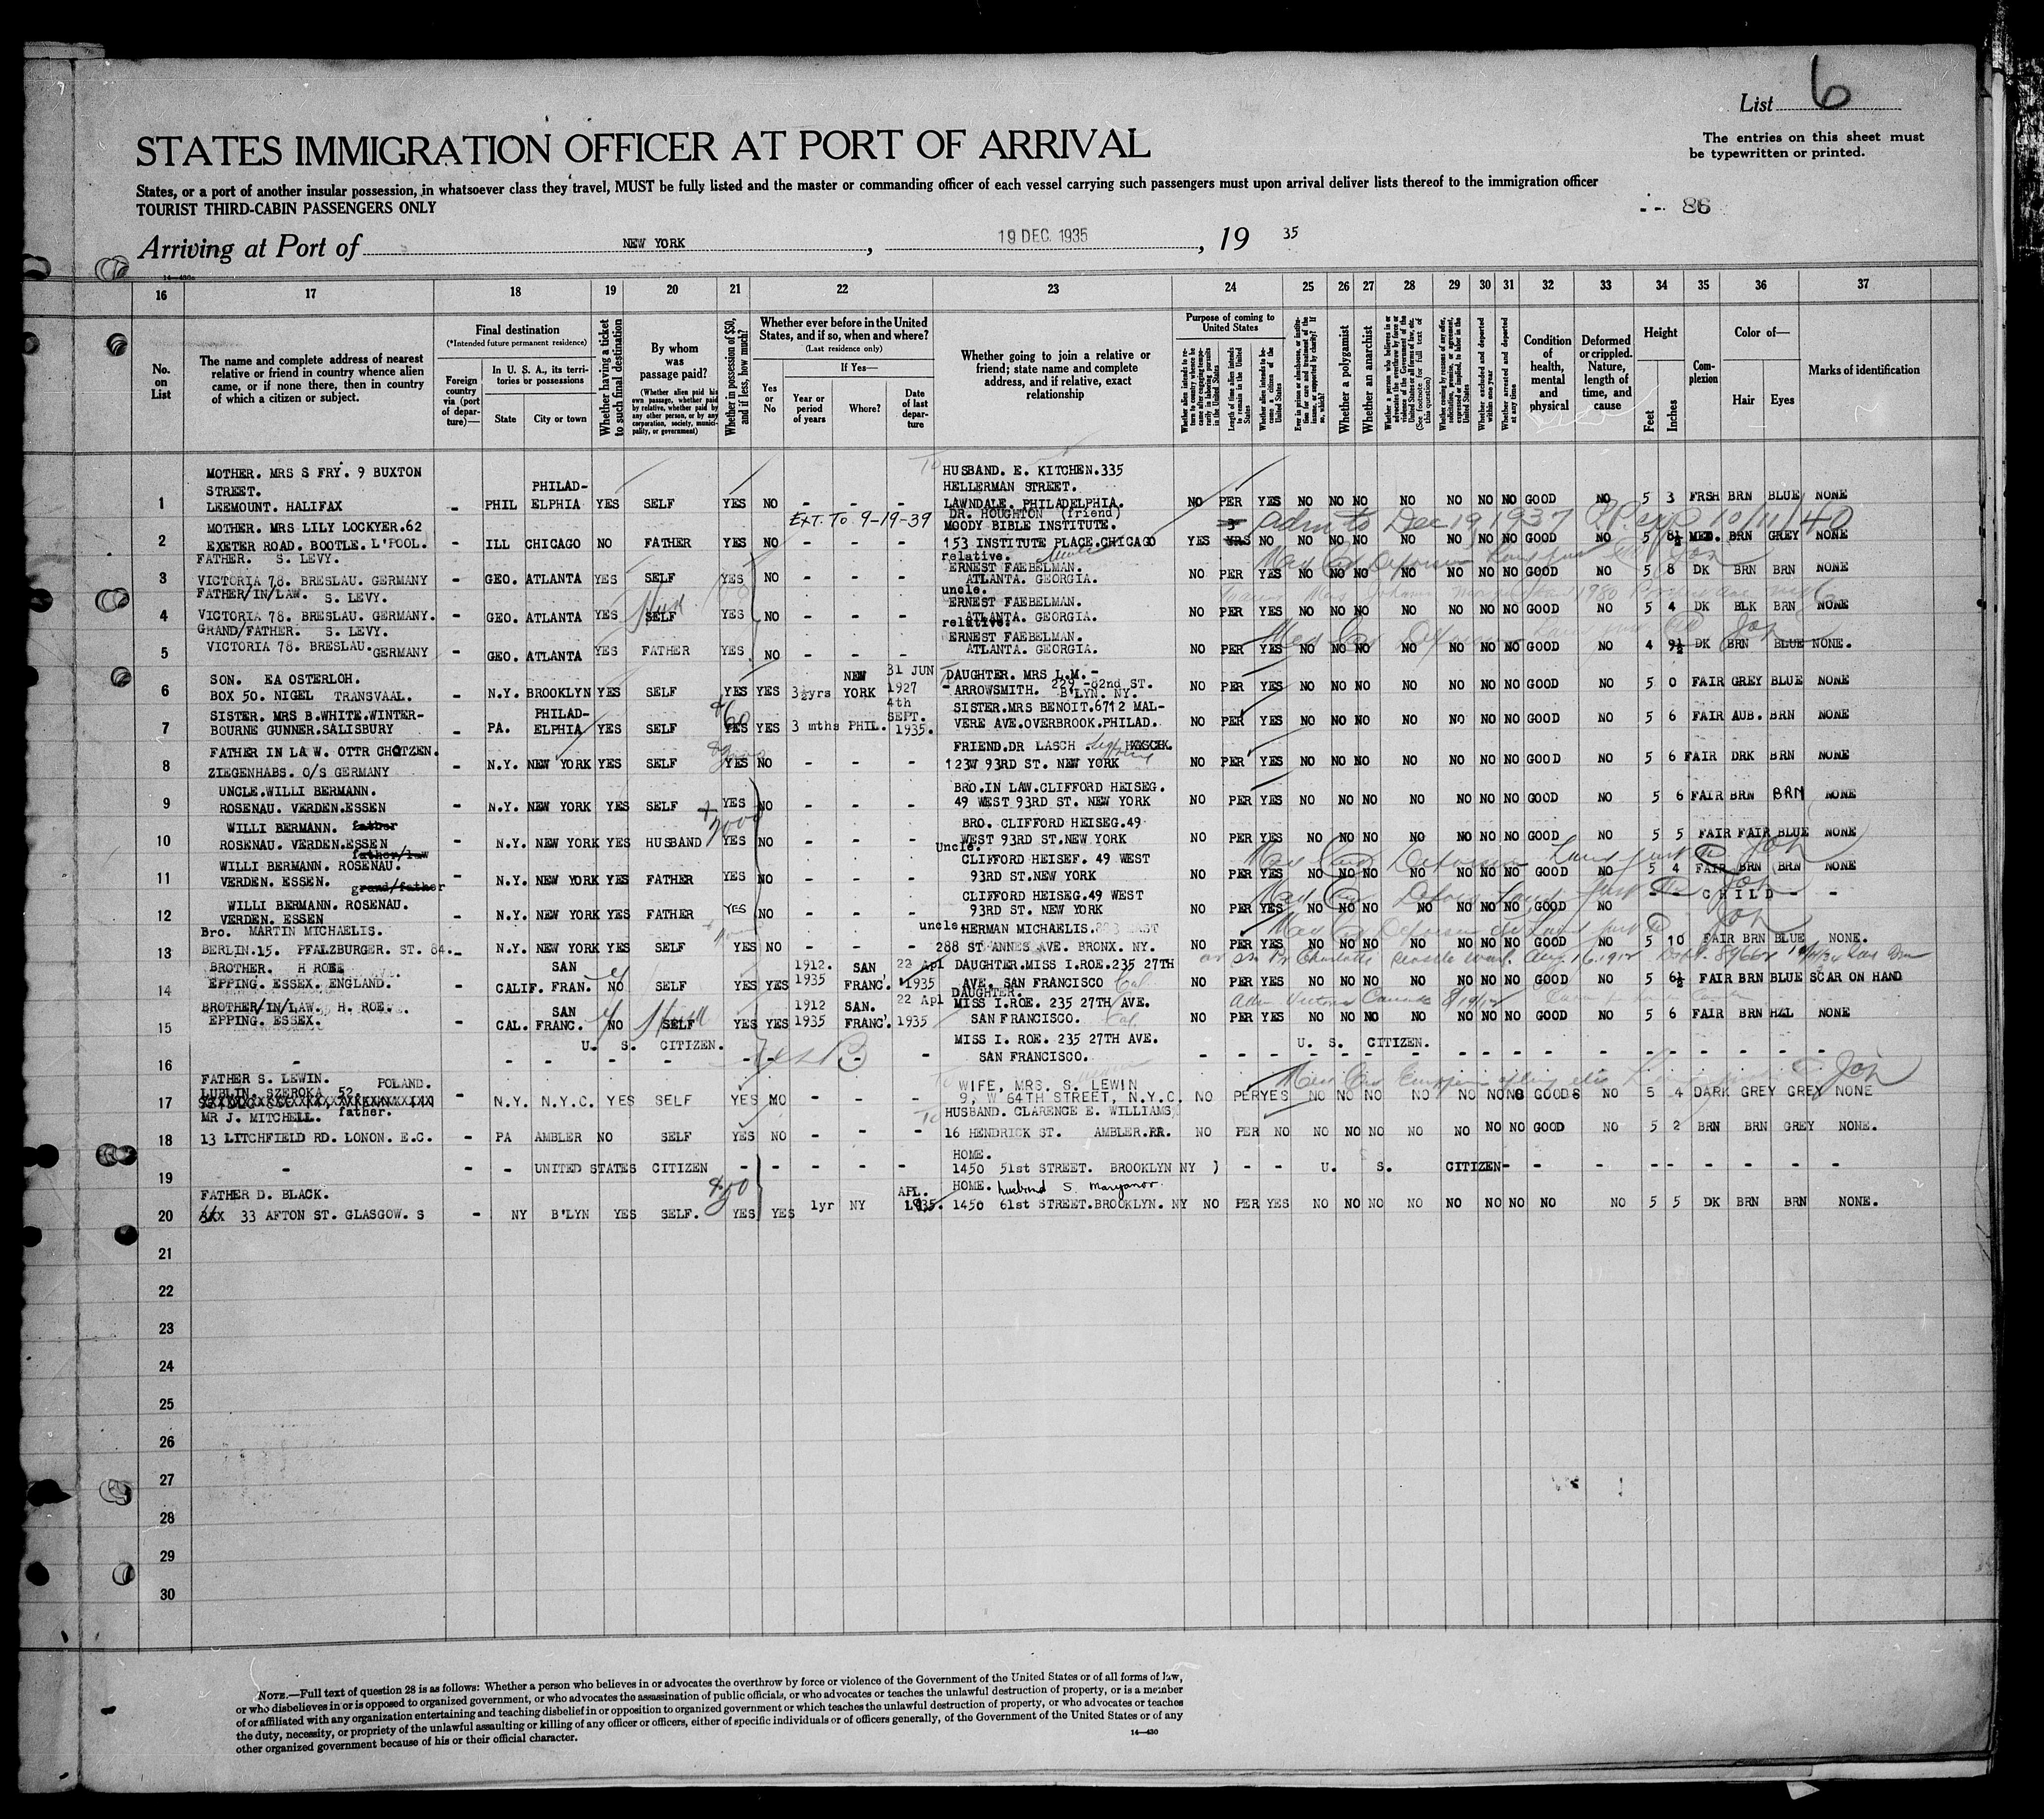 List 6
STATES IMMIGRATION OFFICER AT PORT OF ARRIVAL
The entries on this sheet must
be typewritten or printed.
States, or a port of another insular possession, in whatsoever class they travel, MUST be fully listed and the master or commanding officer of each vessel carrying such passengers must upon arrival deliver lists thereof to the immigration officer
TOURIST THIRD-CABIN PASSENGERS ONLY
86
Arriving at Port of NEW YORK, 19 DEC. 1935, 19 35
16 17 18 19 20 21 22 23 24 25 26 27 28 29 30 31 32 33 34 35 36 37
No. on List
The name and complete address of nearest relative or friend in country whence alien came, or if none there, then in country of which a citizen or subject.
Final destination
(*Intended future permanent residence)
Foreign country via (port of departure)—
In U. S. A., its territories or possessions
State
City or town
Whether having a ticket to such final destination
By whom was passage paid?
(Whether alien paid his own passage, whether paid by relative, whether paid by any other person, or by any corporation, society, municipality, or government)
Whether in possession of $50, and if less, how much?
Whether ever before in the United States, and if so, when and where?
(Last residence only)
Yes or No
If Yes—
Year or period of years
Where?
Date of last departure
Whether going to join a relative or friend; state name and complete address, and if relative, exact relationship
Purpose of coming to United States
Length of time alien intends to remain in the United States
Whether alien intends to become a citizen of the United States
Whether a polygamist
Whether an anarchist
Whether excluded and deported within one year
Whether arrested and deported at any time
Condition of health, mental and physical
Deformed or crippled. Nature, length of time, and cause
Height
Feet
Inches
Complexion
Color of—
Hair
Eyes
Marks of identification
MOTHER. MRS S FRY. 9 BUXTON HUSBAND. E. KITCHEN.335
STREET. PHILAD- HELLERMAN STREET.
1 LEEMOUNT. HALIFAX - PHIL ELPHIA YES SELF YES NO - - - LAWNDALE. PHILADELPHIA. NO PER YES NO NO NO NO NO NO NO GOOD NO 5 3 FRSH BRN BLUE NONE
EXT. To 9-19-39 DR. HOUGHTON (friend) adm to Dec 19, 1937
MOTHER. MRS LILY LOCKYER.62 MOODY BIBLE INSTITUTE. 10/11/40
2 EXETER ROAD. BOOTLE. L'POOL. - ILL CHICAGO NO FATHER YES NO - - - 153 INSTITUTE PLACE.CHICAGO YES 3 YRS NO NO NO NO NO NO NO NO GOOD NO 5 8½ MED. BRN GREY NONE
FATHER. S. LEVY. relative. uncle
ERNEST FAEBELMAN.
3 VICTORIA 78. BRESLAU. GERMANY - GEO. ATLANTA YES SELF YES NO - - - ATLANTA. GEORGIA. NO PER YES NO NO NO NO NO NO NO GOOD NO 5 8 DK BRN BRN NONE
FATHER/IN/LAW. S. LEVY. uncle.
ERNEST FAEBELMAN.
4 VICTORIA 78. BRESLAU. GERMANY. - GEO. ATLANTA YES SELF YES NO - - - ATLANTA. GEORGIA. NO PER YES NO NO NO NO NO NO NO GOOD NO 5 4 DK BLK BRN NONE
GRAND/FATHER. S. LEVY. relative.
ERNEST FAEBELMAN.
5 VICTORIA 78. BRESLAU. GERMANY - GEO. ATLANTA YES FATHER YES. NO - - - ATLANTA. GEORGIA. NO PER YES NO NO NO NO NO NO NO GOOD NO 4 9½ DK BRN BLUE NONE.
SON. EA OSTERLOH. NEW 31 JUN DAUGHTER. MRS L.M. -
6 BOX 50. NIGEL TRANSVAAL. - N.Y. BROOKLYN YES SELF YES YES 3½yrs YORK 1927 ARROWSMITH. 229 -82nd ST. B'LYN. NY. NO PER YES NO NO NO NO NO NO NO GOOD NO 5 0 FAIR GREY BLUE NONE
SISTER. MRS B.WHITE.WINTER- PHILAD- $60 4th SEPT. SISTER.MRS BENOIT.6712 MAL-
7 BOURNE GUNNER.SALISBURY - PA. ELPHIA YES SELF YES YES 3 mths PHIL. 1935. VERE AVE.OVERBROOK.PHILAD. NO PER YES NO NO NO NO NO NO NO GOOD NO 5 6 FAIR AUB. BRN NONE
FATHER IN LAW. OTTR CHOTZEN. FRIEND.DR LASCH
8 ZIEGENHABS. O/S GERMANY - N.Y. NEW YORK YES SELF YES NO - - - 123W 93RD ST. NEW YORK NO PER YES NO NO NO NO NO NO NO GOOD NO 5 6 FAIR DRK BRN NONE
UNCLE.WILLI BERMANN. BRO.IN LAW.CLIFFORD HEISEG.
9 ROSENAU. VERDEN.ESSEN - N.Y. NEW YORK YES SELF YES NO - - - 49 WEST 93RD ST. NEW YORK NO PER YES NO NO NO NO NO NO NO GOOD NO 5 6 FAIR BRN BRN NONE
WILLI BERMANN. father BRO. CLIFFORD HEISEG.49
10 ROSENAU. VERDEN.ESSEN - N.Y. NEW YORK YES HUSBAND YES NO - - - WEST 93RD ST.NEW YORK NO PER YES NO NO NO NO NO NO NO GOOD NO 5 5 FAIR FAIR BLUE NONE
father/law Uncle.
WILLI BERMANN. ROSENAU. CLIFFORD HEISEF. 49 WEST
11 VERDEN. ESSEN. - N.Y. NEW YORK YES FATHER YES NO - - - 93RD ST.NEW YORK NO PER YES NO NO NO NO NO NO NO GOOD NO 5 4 FAIR BRN BRN NONE
grand/father
WILLI BERMANN. ROSENAU. CLIFFORD HEISEG.49 WEST
12 VERDEN. ESSEN - N.Y. NEW YORK YES FATHER YES NO - - - 93RD ST. NEW YORK NO PER YES NO NO NO NO NO NO NO GOOD NO - - CHILD - -
Bro. MARTIN MICHAELIS. uncle HERMAN MICHAELIS.
13 BERLIN.15. PFALZBURGER. ST. 84. - N.Y. NEW YORK YES SELF YES NO - - - 288 ST ANNES AVE. BRONX. NY. NO PER YES NO NO NO NO NO NO NO GOOD NO 5 10 FAIR BRN BLUE NONE.
BROTHER. H ROE SAN 1912. SAN 22 Apl DAUGHTER.MISS I.ROE.235 27TH
14 EPPING. ESSEX. ENGLAND. - CALIF. FRAN. NO SELF YES YES 1935 FRANC'. 1935 AVE. SAN FRANCISCO Cal. NO PER YES NO NO NO NO NO NO NO GOOD NO 5 6½ FAIR BRN BLUE SCAR ON HAND
DAUGHTER.
BROTHER/IN/LAW. H. ROE. SAN 1912 SAN. 22 Apl MISS I.ROE. 235 27TH AVE.
15 EPPING. ESSEX. - CAL. FRANC. NO SELF YES YES 1935 FRANC'. 1935 SAN FRANCISCO. Cal. NO PER YES NO NO NO NO NO NO NO GOOD NO 5 6 FAIR BRN HZL NONE
U. S. CITIZEN. MISS I. ROE. 235 27TH AVE. U. S. CITIZEN.
16 - SAN FRANCISCO.
FATHER S. LEWIN. POLAND. WIFE, MRS. S. LEWIN
17 LUBLIN. SZEROKA 52 - N.Y. N.Y.C. YES SELF YES NO - - - 9, W 64TH STREET, N.Y.C. NO PER YES NO NO NO NO NO NO NO GOOD NO 5 4 DARK GREY GREY NONE
MR J. MITCHELL. father. HUSBAND. CLARENCE E. WILLIAMS
18 13 LITCHFIELD RD. LONON. E.C. - PA AMBLER NO SELF YES NO - - - 16 HENDRICK ST. AMBLER.PA. NO PER NO NO NO NO NO NO NO NO GOOD NO 5 2 BRN BRN GREY NONE.
HOME.
19 - - - UNITED STATES CITIZEN - - - - - 1450 51st STREET. BROOKLYN NY ) - - U. S. CITIZEN - - - - - - - -
FATHER D. BLACK. $50 APL. HOME. husband S. Maryanov.
20 33 AFTON ST. GLASGOW. S - NY B'LYN YES SELF. YES YES 1yr NY 1935. 1450 61st STREET.BROOKLYN. NY NO PER YES NO NO NO NO NO NO NO NO NO 5 5 DK BRN BRN NONE.
21
22
23
24
25
26
27
28
29
30
NOTE.—Full text of question 28 is as follows: Whether a person who believes in or advocates the overthrow by force or violence of the Government of the United States or of all forms of law,
or who disbelieves in or is opposed to organized government, or who advocates the assassination of public officials, or who advocates or teaches the unlawful destruction of property, or is a member
of or affiliated with any organization entertaining and teaching disbelief in or opposition to organized government or which teaches the unlawful destruction of property, or who advocates or teaches
the duty, necessity, or propriety of the unlawful assaulting or killing of any officer or officers, either of specific individuals or of officers generally, of the Government of the United States or of any
other organized government because of his or their official character.
14—430